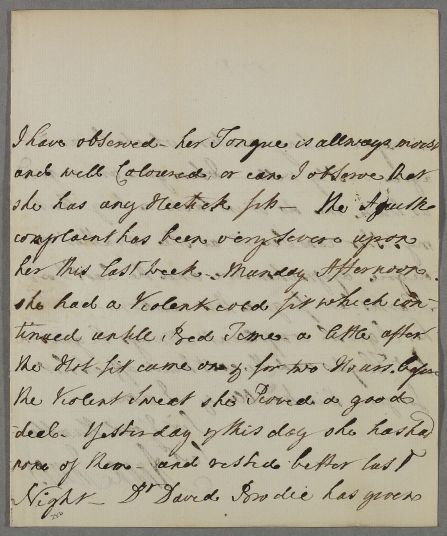 I have observed - her Tongue is allways moist
and well Coloured, or can I observe that
she has any Hecktick fit - The Aguish
complaint has been very sever upon
her this last week. Munday Afternoon
she had a Violent cold fit which con-
tinued untle Bed Time a little after
the Hot fit came on & for two Hours before
the Violent Sweat she Raved a good
deel - Yesterday & this day she has had
none of them - and rested better last
Night - Dr David Brodie has given